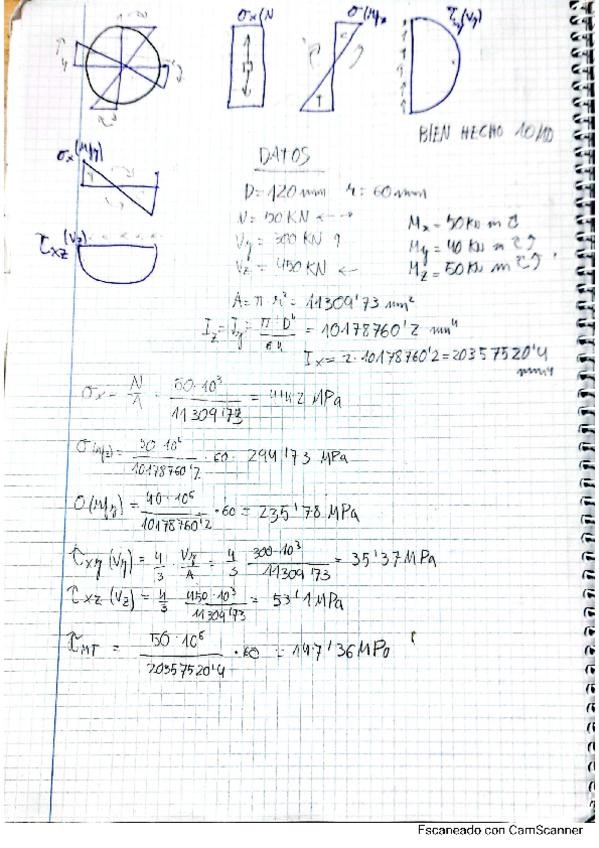 σx(N
σ(M)x
τxy(Vy)
BIEN HECHO 10/10
σx(My)
DATOS
D=120mm r=60mm
τxz(Vz)
N=50KN
Vy=300 KN
Vz=450KN
Mx=50KN m
My=40 KN m
Mz=50KN m
A=π·r²=11309'73 mm²
Iz=Iy=π·D⁴/64=10178760'2 mm⁴
Ix=2·10178760'2=20357520'4 mm⁴
σx=N/A=50·10³/11309'73=4'42 MPa
σ(Mz)=50·10⁶/10178760'2·60=294'73 MPa
σ(My)=40·10⁶/10178760'2·60=235'78MPa
τxy(Vy)=4/3·Vy/A=4/3 300·10³/11309'73=35'37MPa
τxz(Vz)=4/3 450·10³/11309'73=53'1MPa
τMT=50·10⁶/20357520'4·60=147'36MPa
Escaneado con CamScanner